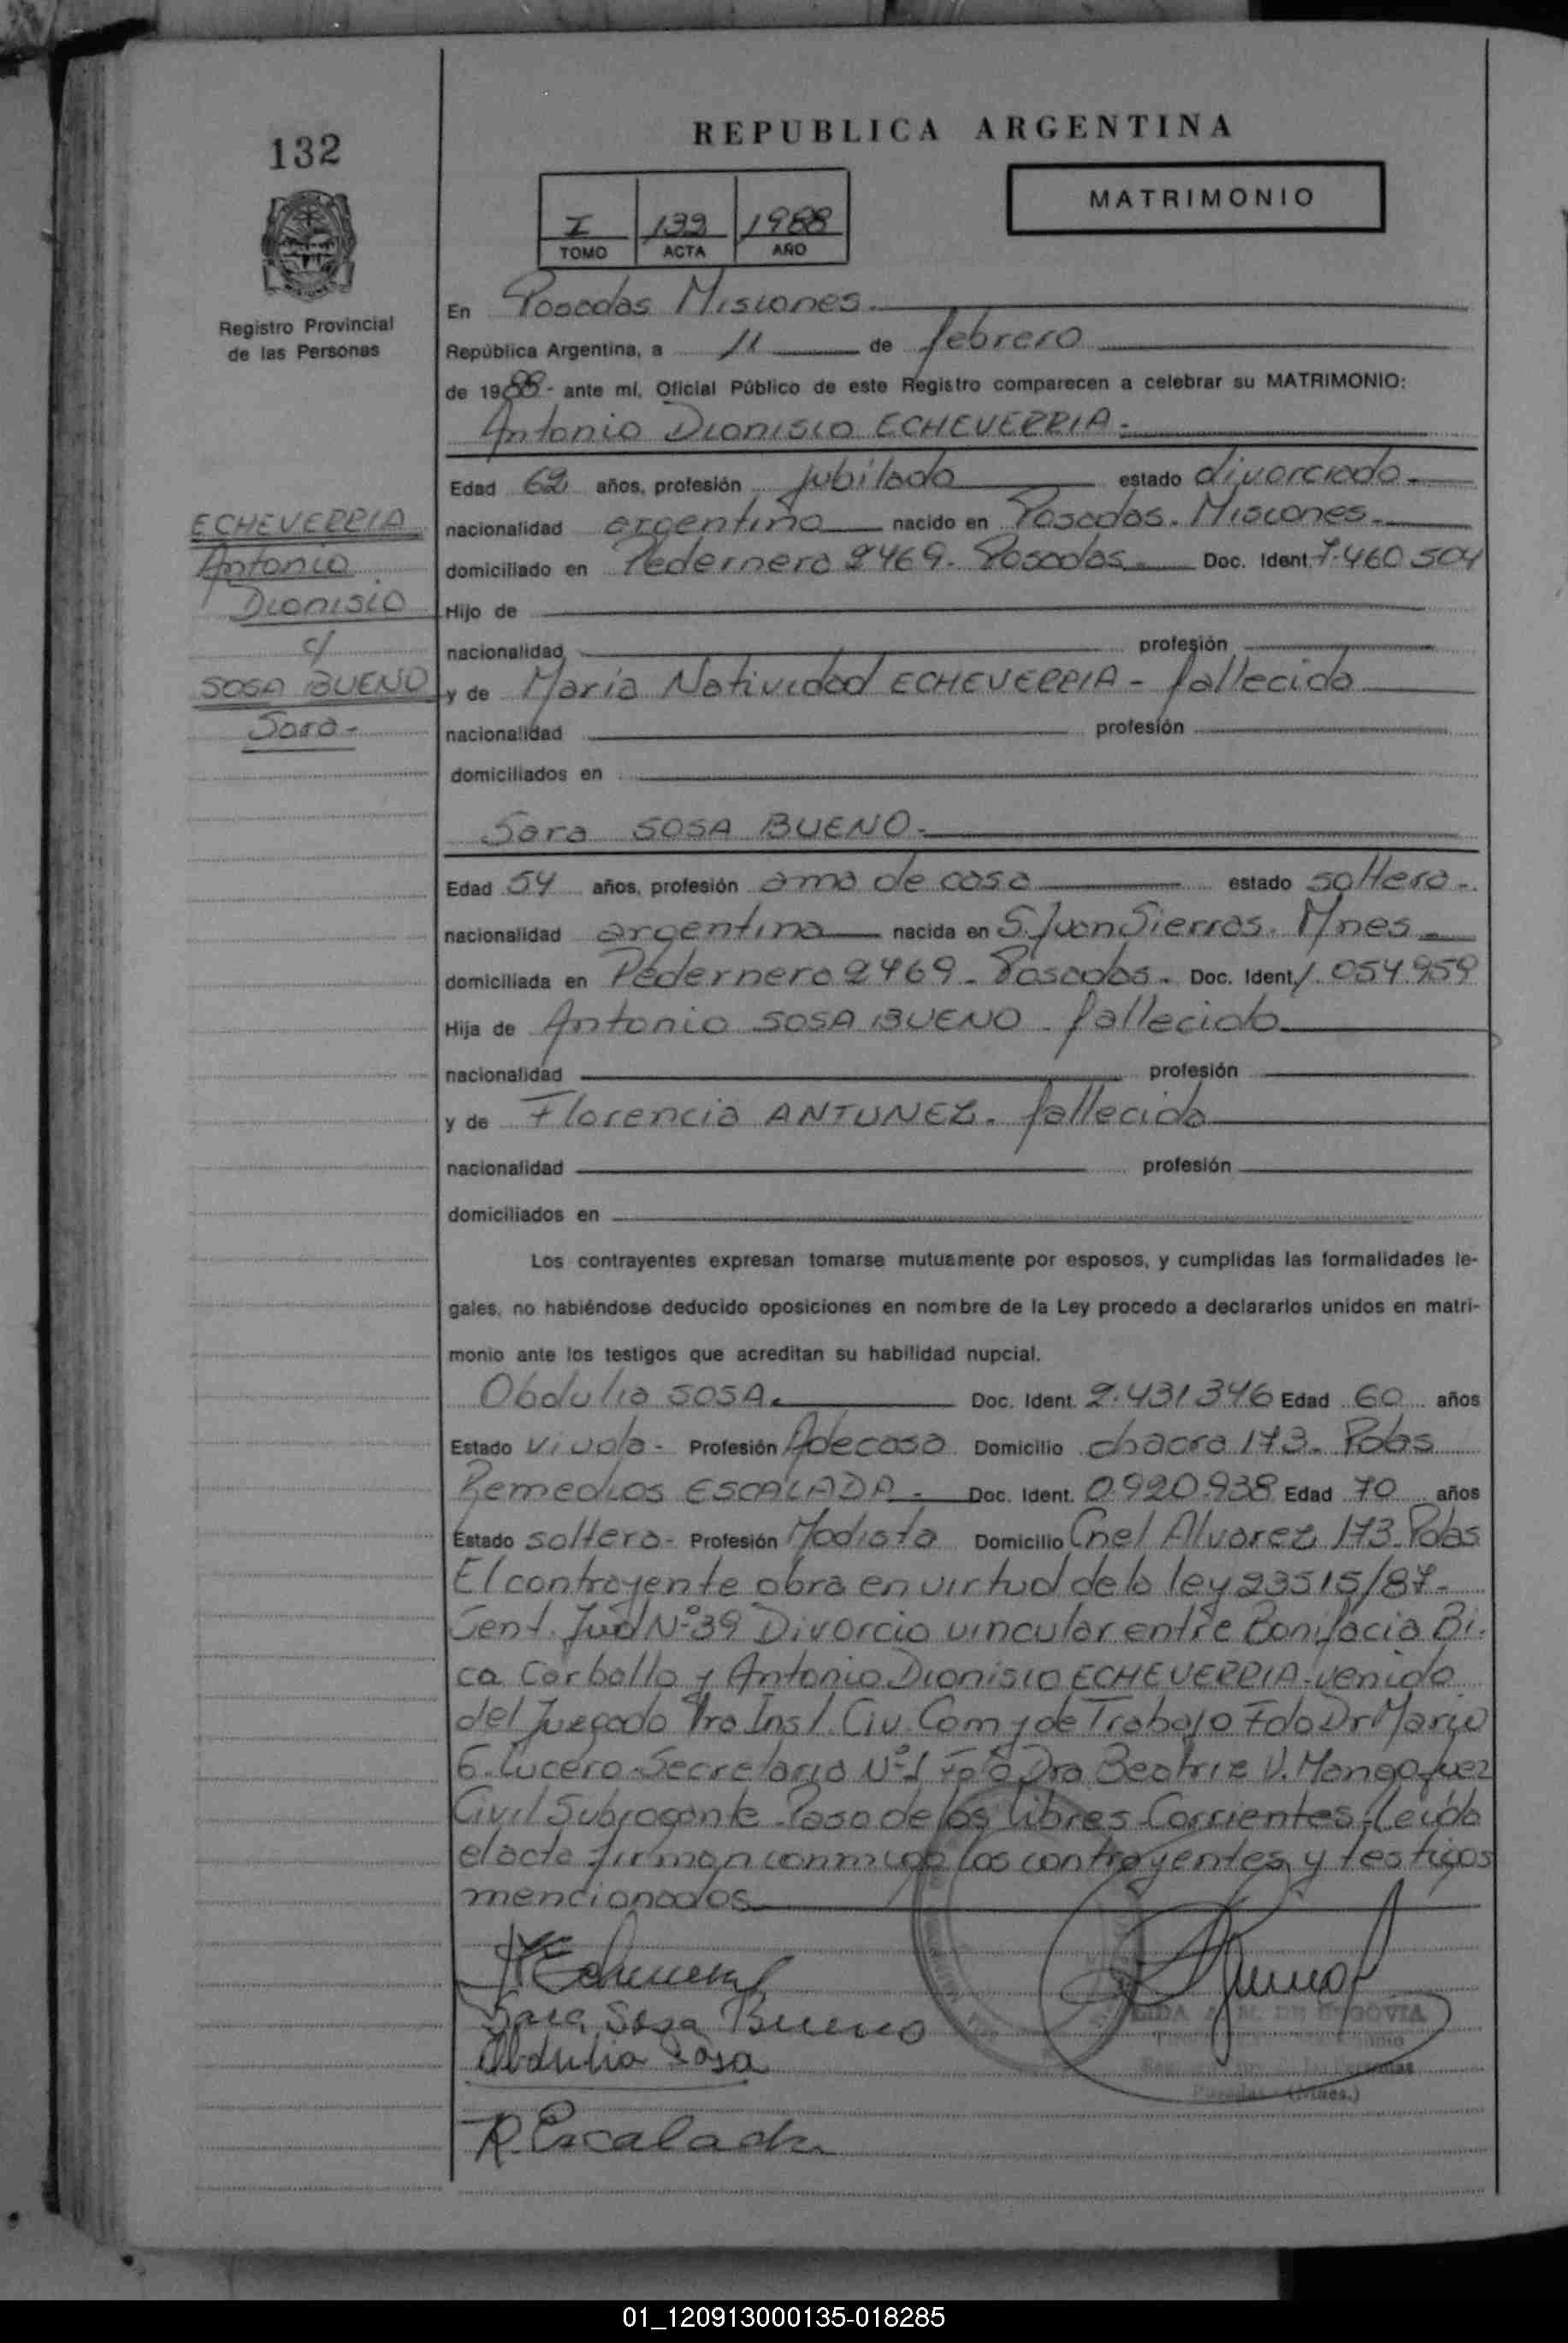 REPUBLICA ARGENTINA
132
MATRIMONIO
I 132 1988
TOMO ACTA AÑO
Registro Provincial
de las Personas
En Posadas Misiones.
República Argentina, a 11 de febrero
de 1988- ante mí, Oficial Público de este Registro comparecen a celebrar su MATRIMONIO:
Antonio Dionisio ECHEVERRIA.
Edad 62 años, profesión jubilado estado divorciado.
ECHEVERRIA
Antonio
Dionisio
c/
SOSA BUENO
Sara-
nacionalidad argentina nacido en Posadas. Misiones.
domiciliado en Pedernera 2469. Posadas. Doc. Ident. 7.460.504
Hijo de
nacionalidad profesión
y de Maria Natividad ECHEVERRIA - fallecida
nacionalidad profesión
domiciliados en
Sara SOSA BUENO.
Edad 54 años, profesión ama de casa estado soltera.
nacionalidad argentina nacida en S. Juan Sierras. Mnes.
domiciliada en Pedernera 2469. Posadas. Doc. Ident. 1.054.959
Hija de Antonio SOSA BUENO - fallecido
nacionalidad profesión
y de Florencia ANTUNEZ. fallecida
nacionalidad profesión
domiciliados en
Los contrayentes expresan tomarse mutuamente por esposos, y cumplidas las formalidades le-
gales, no habiéndose deducido oposiciones en nombre de la Ley procedo a declararlos unidos en matri-
monio ante los testigos que acreditan su habilidad nupcial.
Obdulia SOSA. Doc. Ident. 2.431.346 Edad 60 años
Estado viuda- Profesión Adecasa Domicilio chacra 173. Pdas
Remedios ESCALADA. Doc. Ident. 0.920.938 Edad 70 años
Estado soltera- Profesión Modista Domicilio Cnel Alvarez 173. Pdas
El contrayente obra en virtud de la ley 23515/87-
Sent. Jud Nº39 Divorcio vincular entre Bonifacia Bi.
ca Carballo y Antonio Dionisio ECHEVERRIA-venida
del Juzgado 1ra Inst. Civ. Com y de Trabajo Fdo Dr Mario
G. Lucero-Secretaria Nº1 Fdo Dra Beatriz V. Mango Juez
Civil Subrogante-Paso de los Libres-Corrientes-Leída
el acta firman conmigo los contrayentes y testigos
mencionados
Sara Sosa Bueno
Obdulia Sosa
R. Escalada
M. DE SEGOVIA
Posadas - (Mnes.)
01_120913000135-018285